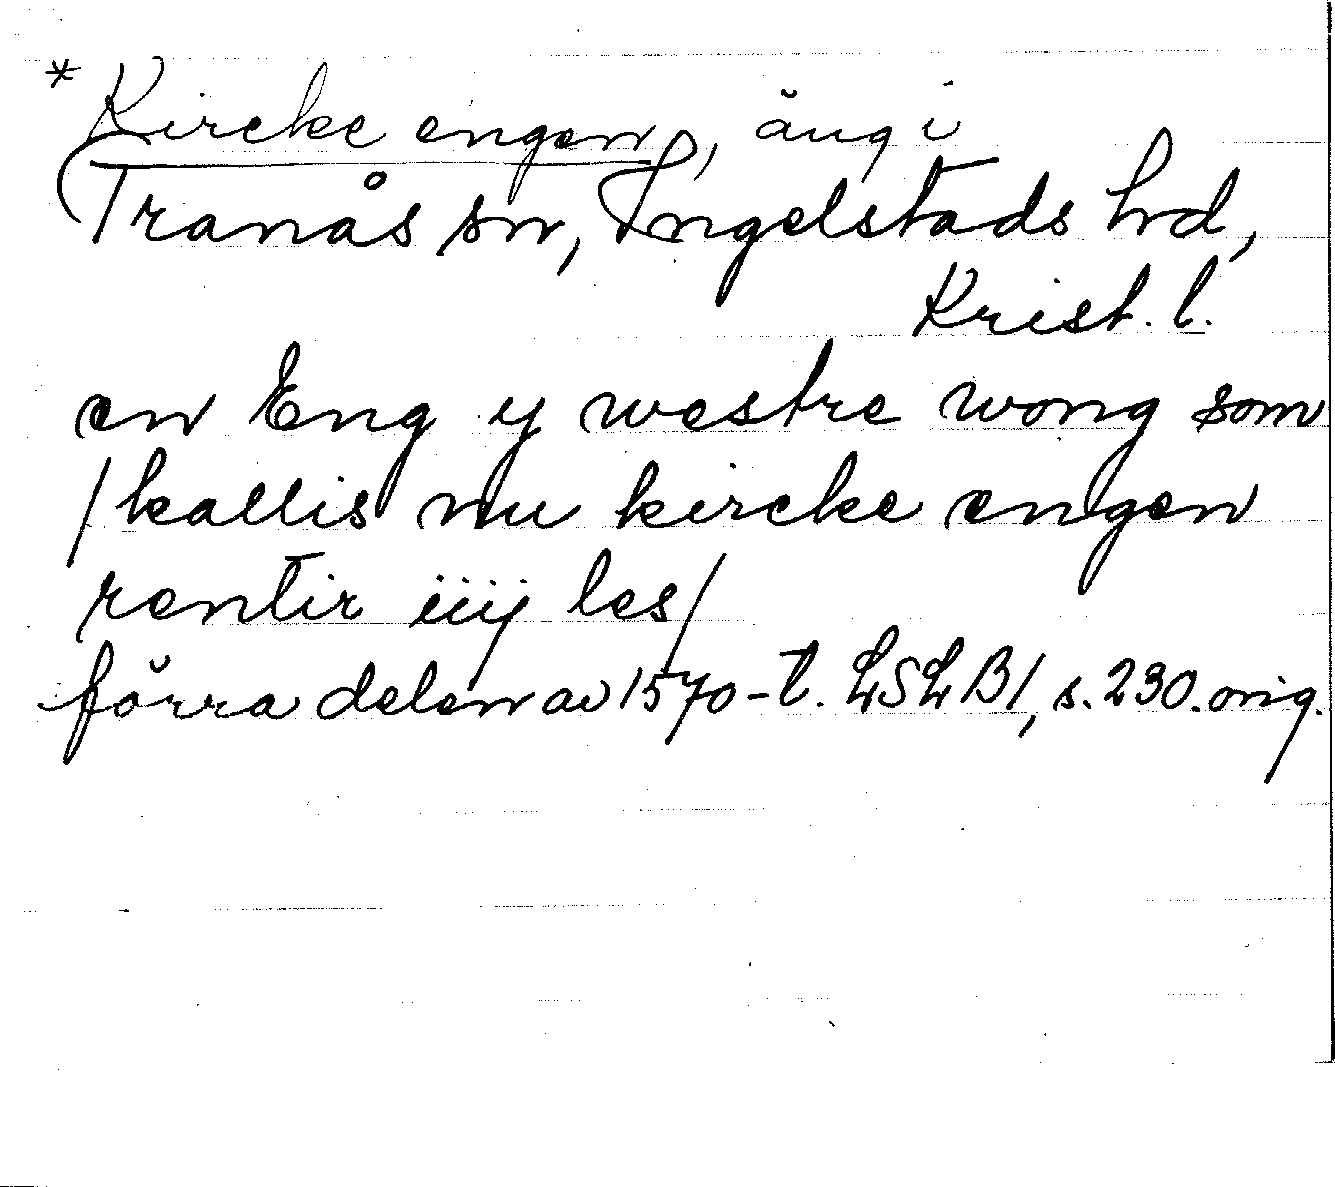 * Kircke engen, äng i
Tranås sn, Ingelstads hd,
Krist. l.
en Eng y westre wong som
/kallis nu kircke engen
rentir iiij les/
förra delen av 1570-t. LSLB1, s. 230. orig.